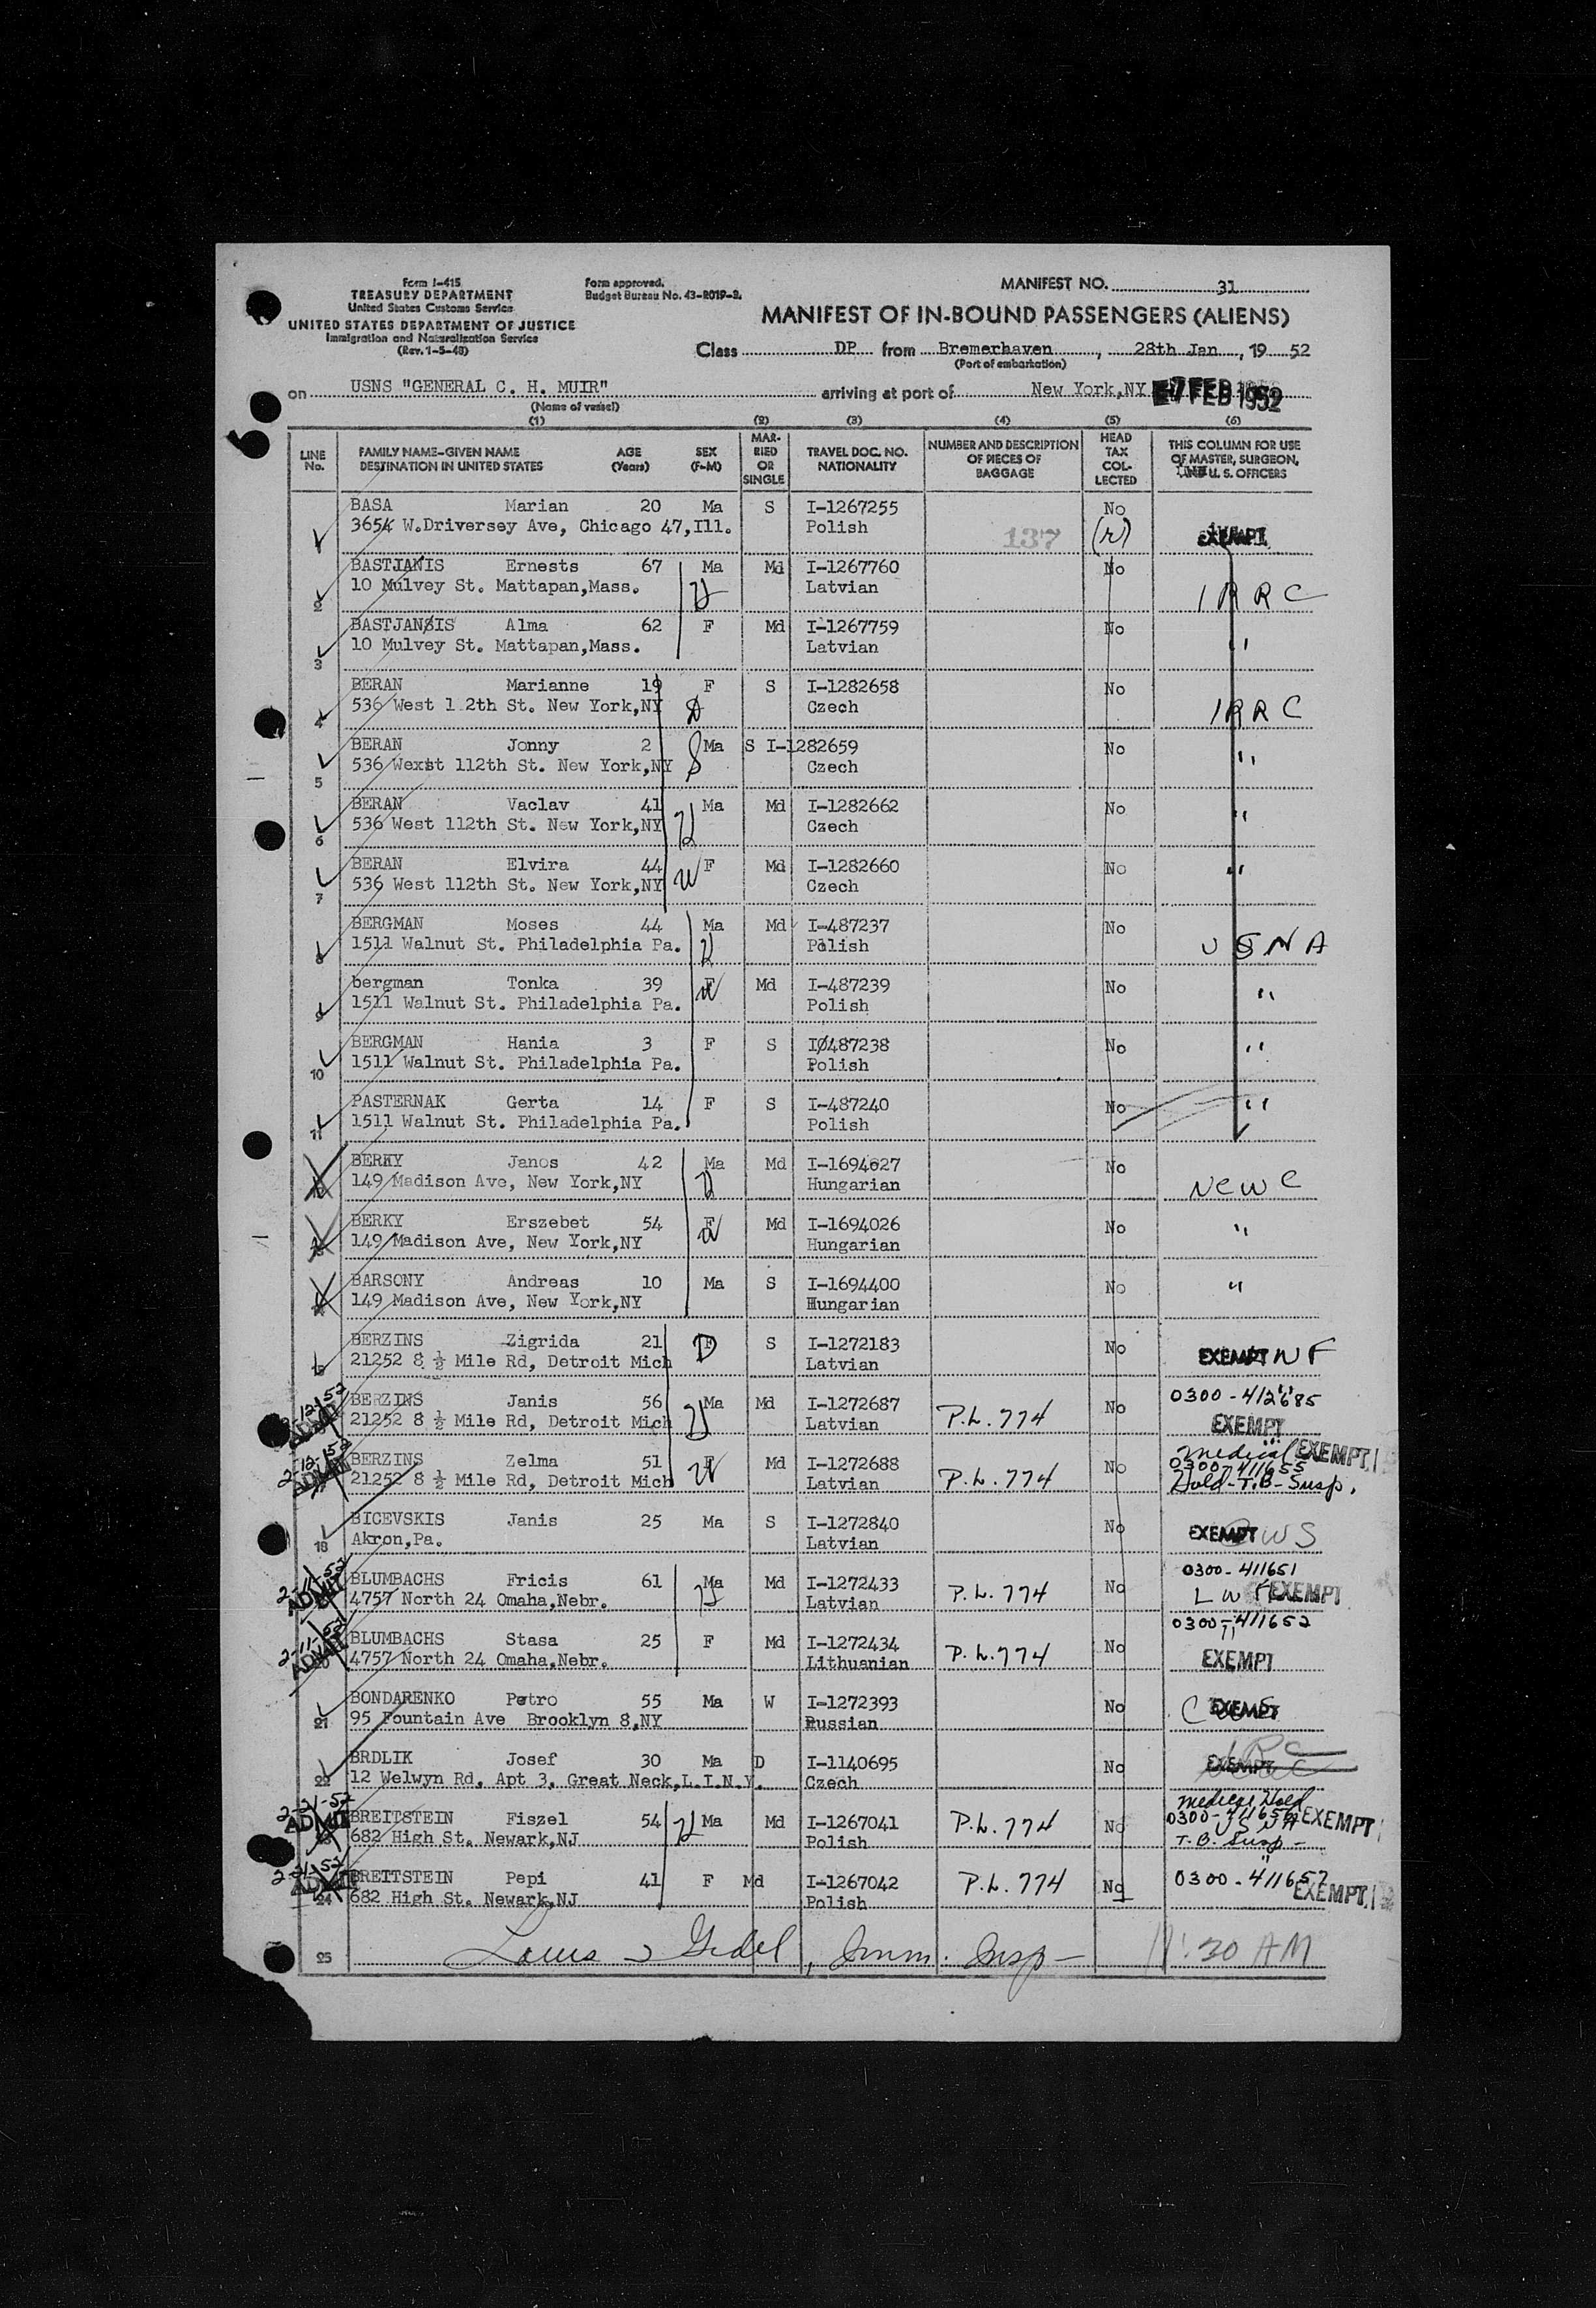 Form I-415
TREASURY DEPARTMENT
United States Customs Service
UNITED STATES DEPARTMENT OF JUSTICE
Immigration and Naturalization Service
(Rev. 1-5-48)
Form approved.
Budget Bureau No. 43-R019-2.
MANIFEST NO. 31
MANIFEST OF IN-BOUND PASSENGERS (ALIENS)
Class DP from Bremerhaven, 28th Jan, 19 52
(Port of embarkation)
on USNS "GENERAL C. H. MUIR" arriving at port of New York,NY 7 FEB 1952
(Name of vessel)
(1) (2) (3) (4) (5) (6)
LINE No.
FAMILY NAME-GIVEN NAME DESTINATION IN UNITED STATES
AGE (Years)
SEX (F-M)
MARRIED OR SINGLE
TRAVEL DOC. NO. NATIONALITY
NUMBER AND DESCRIPTION OF PIECES OF BAGGAGE
HEAD TAX COLLECTED
THIS COLUMN FOR USE OF MASTER, SURGEON, AND U. S. OFFICERS
BASA Marian 20 Ma S I-1267255 No
3654 W.Driversey Ave, Chicago 47,Ill. Polish 137 (r) EXEMPT
2 BASTJANIS Ernests 67 Ma Md I-1267760 No
10 Mulvey St. Mattapan,Mass. Latvian IRRC
3 BASTJANSIS Alma 62 F Md I-1267759 No
10 Mulvey St. Mattapan,Mass. Latvian "
4 BERAN Marianne 19 F S I-1282658 No
536 West 1 2th St. New York,NY Czech IRRC
5 BERAN Jonny 2 Ma S I-1282659 No
536 Wexst 112th St. New York,NY Czech "
6 BERAN Vaclav 41 Ma Md I-1282662 No
536 West 112th St. New York,NY Czech "
7 BERAN Elvira 44 F Md I-1282660 No
536 West 112th St. New York,NY Czech "
8 BERGMAN Moses 44 Ma Md I-487237 No
1511 Walnut St. Philadelphia Pa. Polish USNA
9 bergman Tonka 39 F Md I-487239 No
1511 Walnut St. Philadelphia Pa. Polish "
10 BERGMAN Hania 3 F S I0487238 No
1511 Walnut St. Philadelphia Pa. Polish "
11 PASTERNAK Gerta 14 F S I-487240 No
1511 Walnut St. Philadelphia Pa. Polish "
12 BERKY Janos 42 Ma Md I-1694027 No
149 Madison Ave, New York,NY Hungarian NCWC
13 BERKY Erszebet 54 F Md I-1694026 No
149 Madison Ave, New York,NY Hungarian "
14 BARSONY Andreas 10 Ma S I-1694400 No
149 Madison Ave, New York,NY Hungarian "
15 BERZINS Zigrida 21 F S I-1272183 No
21252 8 ½ Mile Rd, Detroit Mich Latvian EXEMPT
2-12-52 ADMIT BERZINS Janis 56 Ma Md I-1272687 P.L. 774 No 0300-412685
21252 8 ½ Mile Rd, Detroit Mich Latvian EXEMPT
2-12-52 ADMIT BERZINS Zelma 51 F Md I-1272688 P.L. 774 No Medical EXEMPT
21252 8 ½ Mile Rd, Detroit Mich Latvian 0300-411655
Hold-T.B-Susp.
18 BICEVSKIS Janis 25 Ma S I-1272840 No
Akron,Pa. Latvian EXEMPT WS
2-11-52 ADMIT BLUMBACHS Fricis 61 Ma Md I-1272433 P.L. 774 No 0300-411651
4757 North 24 Omaha,Nebr. Latvian LWF EXEMPT
2-11-52 ADMIT 20 BLUMBACHS Stasa 25 F Md I-1272434 P.L. 774 No 0300-411652
4757 North 24 Omaha,Nebr. Lithuanian EXEMPT
21 BONDARENKO Petro 55 Ma W I-1272393 No
95 Fountain Ave Brooklyn 8,NY Russian EXEMPT
22 BRDLIK Josef 30 Ma D I-1140695 No
12 Welwyn Rd, Apt 3, Great Neck,L.I.N.Y. Czech EXEMPT
2-21-52 ADMIT BREITSTEIN Fiszel 54 Ma Md I-1267041 P.L. 774 No Medical Hold
682 High St. Newark,NJ Polish 0300-411656 EXEMPT
USNA
T.B. Susp-
2-21-52 ADMIT 24 BREITSTEIN Pepi 41 F Md I-1267042 P.L. 774 No 0300-411657
682 High St. Newark,NJ Polish EXEMPT
25 Louis Gedel, Imm. Insp- 11:30 AM